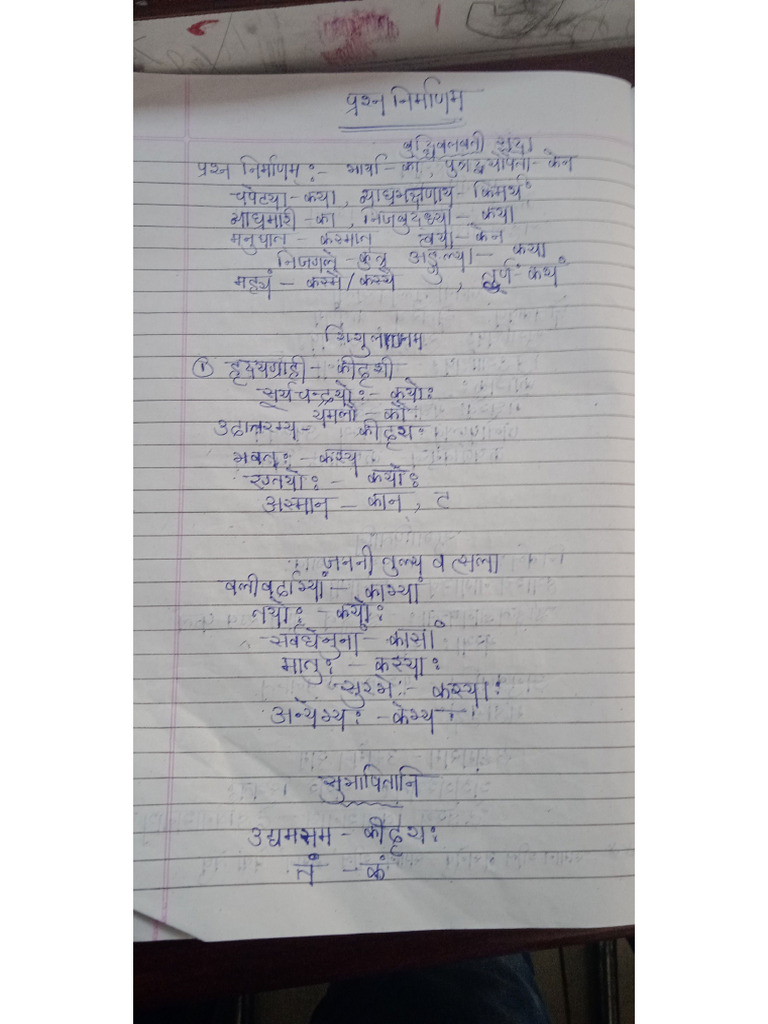 प्रश्न निर्माणम
बुद्धिबलवती सदा
प्रश्न निर्माणम :- भार्या - का , पुत्रद्वयोपेता - केन
चपेटया - कया , व्याघ्रभक्षणाय - किमर्थं
व्याघ्रमारी - का , निजबुद्ध्या - कया
मनुषात - कस्मात त्वया - केन
निजगले - कुत्र अङ्गुल्या - कया
मह्यं - कस्मै / कस्यै , तूर्णं - कथं
शिशुलालनम
① हृदयग्राही - कीदृशी
सूर्यचन्द्रयोः - कयोः
यमलौ - कौ
उदात्तरम्य - कीदृशः
भवतः - कस्य
एतयोः - कयोः
अस्मान - कान ,
जननी तुल्य वत्सला
बलीवर्दाभ्यां - काभ्यां
तयोः - कयोः
सर्वधेनुनां - कासां
मातुः - कस्याः
सुरभेः - कस्याः
अन्येभ्यः - केभ्यः
सुभाषितानि
उद्यमसम - कीदृशः
तं - कं